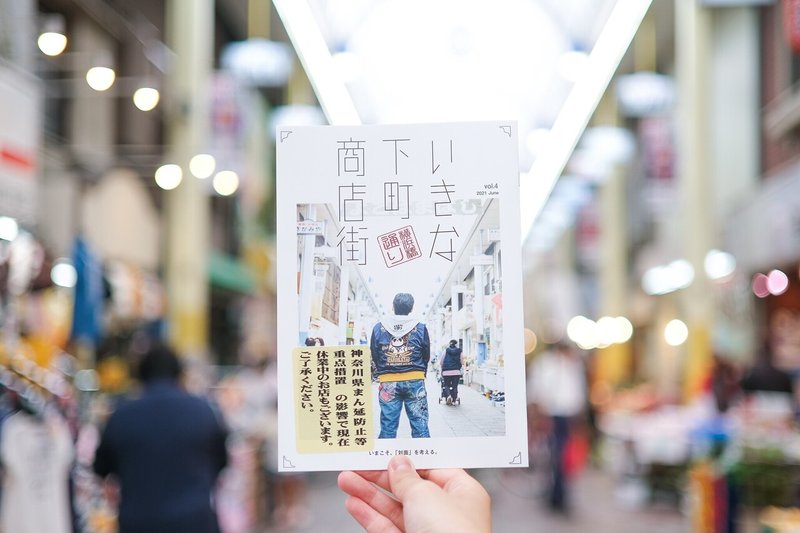 いきな
下町
商店街
vol.4
2021 June
横浜橋
通り
神奈川県まん延防止等
重点措置 の影響で現在
休業中のお店もございます。
ご了承ください。
いまこそ、「対面」を考える。